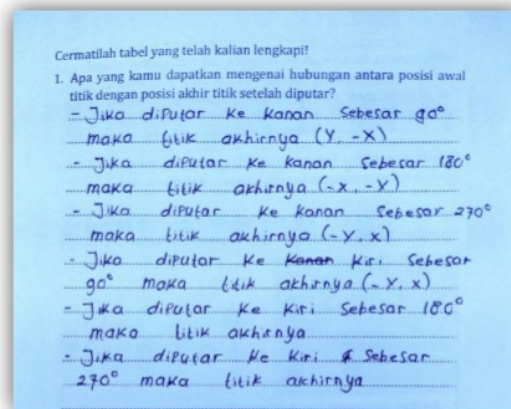 Cermatilah tabel yang telah kalian lengkapi!
1. Apa yang kamu dapatkan mengenai hubungan antara posisi awal
titik dengan posisi akhir titik setelah diputar?
- Jika diputar ke kanan sebesar 90°
maka titik akhirnya (Y, -X)
- Jika diputar ke kanan sebesar 180°
maka titik akhirnya (-X, -Y)
- Jika diputar ke kanan sebesar 270°
maka titik akhirnya (-Y, X)
- Jika diputar ke kiri sebesar
90° maka titik akhirnya (-Y, X)
- Jika diputar ke kiri sebesar 180°
maka titik akhirnya
- Jika diputar ke kiri sebesar
270° maka titik akhirnya